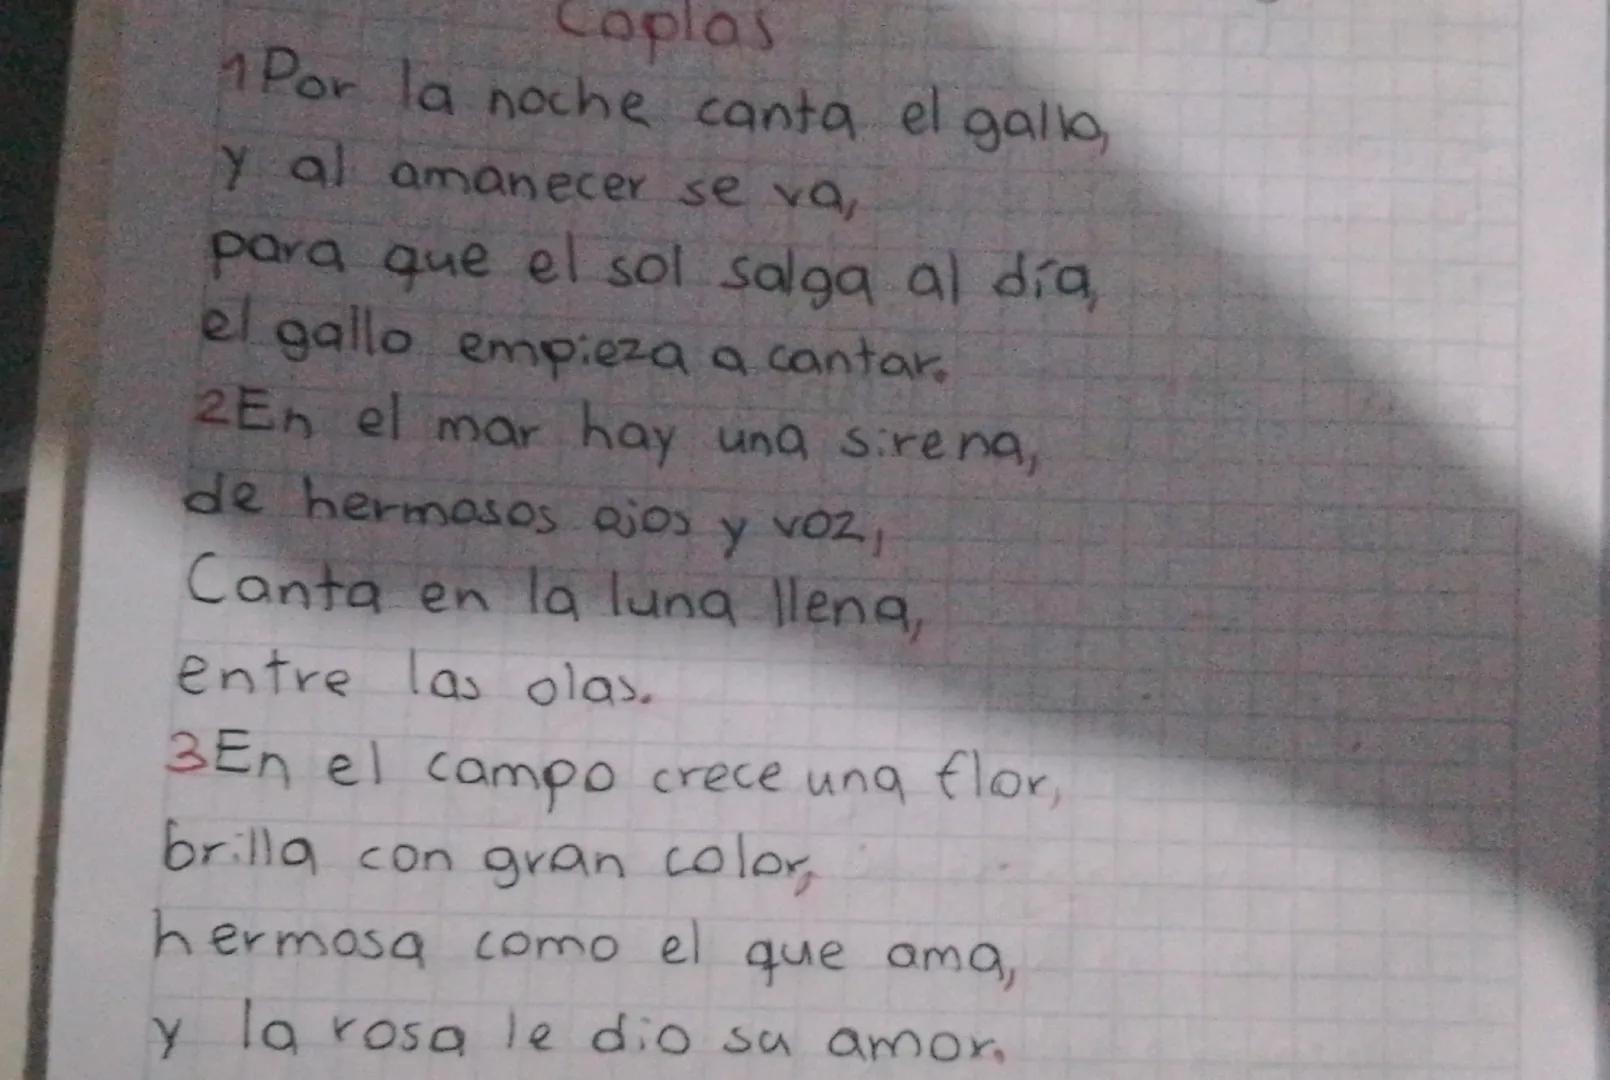 Coplas
1 Por la noche canta el gallo,
y al amanecer se va,
para que el sol salga al día,
el gallo empieza a cantar.
2 En el mar hay una sirena,
de hermosos ojos y voz,
Canta en la luna llena,
entre las olas.
3 En el campo crece una flor,
brilla con gran color,
hermosa como el que ama,
y la rosa le dio su amor.